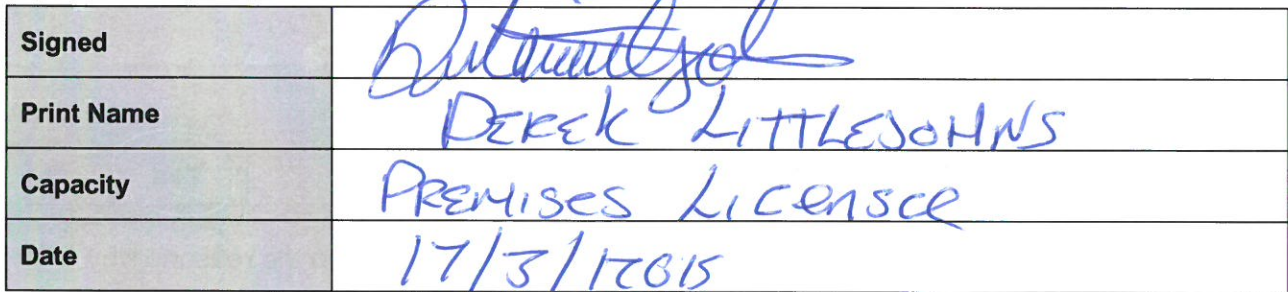 Signed
Print Name DEREK LITTLEJOHNS
Capacity PREMISES Licensee
Date 17/3/